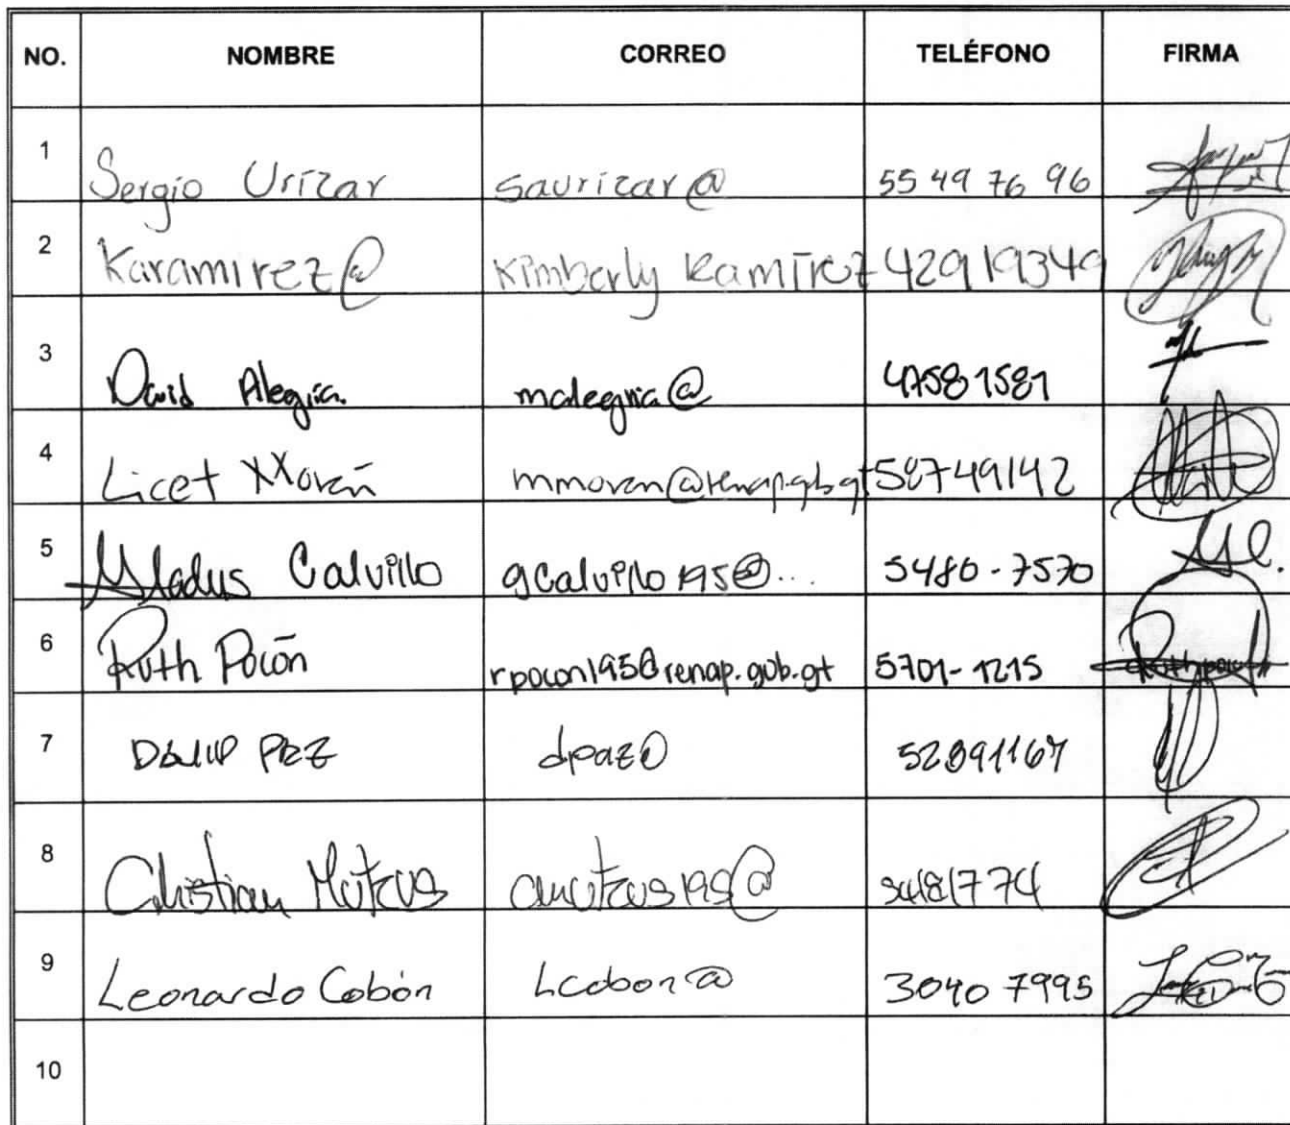 NO. NOMBRE CORREO TELÉFONO FIRMA
1 Sergio Urízar saurizar@ 55 49 76 96
2 Karamirez@ Kimberly Ramírez 42919349
3 David Alegría. malegria@ 47581581
4 Licet Morán mmoran@renap.gob.gt 58749142
5 Gladys Calvillo gcalvillo195@... 5480-7570
6 Ruth Pocón rpocon195@renap.gob.gt 5701-1215
7 David PAZ dpaz@ 52091167
8 Christian 195@
9 Leonardo Cobón Lcobon@ 3040 7995
10